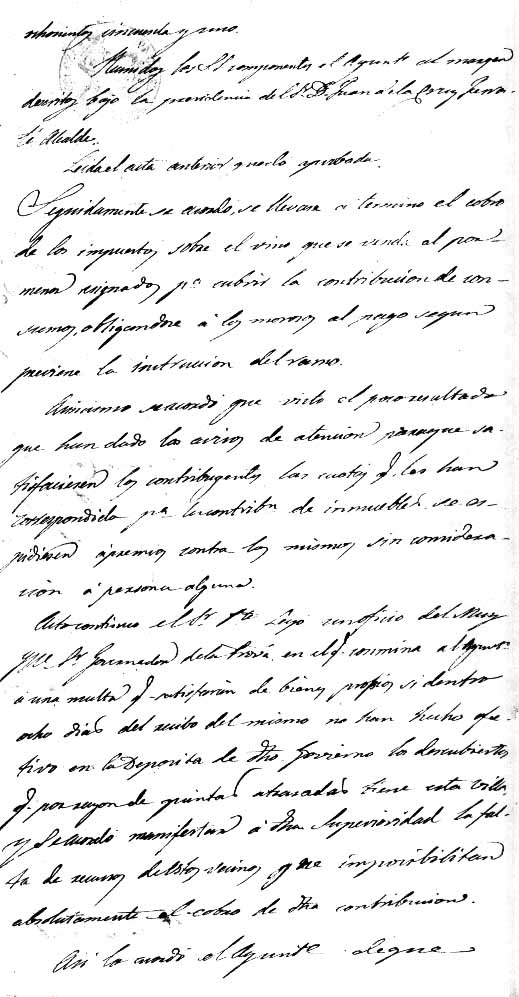 ochocientos cincuenta y uno.
Reunidos los SS componentes el Ayunto al margen
descritos bajo la presidencia del Sr. D. Juan de la Cruz
Alcalde.
Leida el acta anterior quedo aprobada.
Seguidamente se acordo, se llevara a termino el cobro
de los impuestos sobre el vino que se venda al por
menor asignados pa cubrir la contribucion de con-
sumos, obligandose á los morosos al pago segun
previene la instruccion del ramo.
Asimismo se acordó que visto el poco resultado
que han dado los avisos de atencion para que sa-
tisfaciesen los contribuyentes las cuotas q. les han
correspondido pa la contribn de inmuebles, se es-
pidiesen apremios contra los mismos sin considera-
cion á persona alguna.
Acto continuo el Sr. Pte Leyó un oficio del Muy
Yltre Sr Governador de la Prova. en el q. conmina al Ayunto
a una multa q. satisfarán de bienes propios si dentro
ocho dias del recibo del mismo no han hecho efe-
tivo en la Deposita de dho Govierno los descubiertos
q. por razon de quintas atrasadas tiene esta villa
y Se acordó manifestar á dha Superioridad la fal-
ta de recursos de estos vecinos que imposibilitan
absolutamente el cobro de dha contribucion.
Asi lo acordó el Ayunte